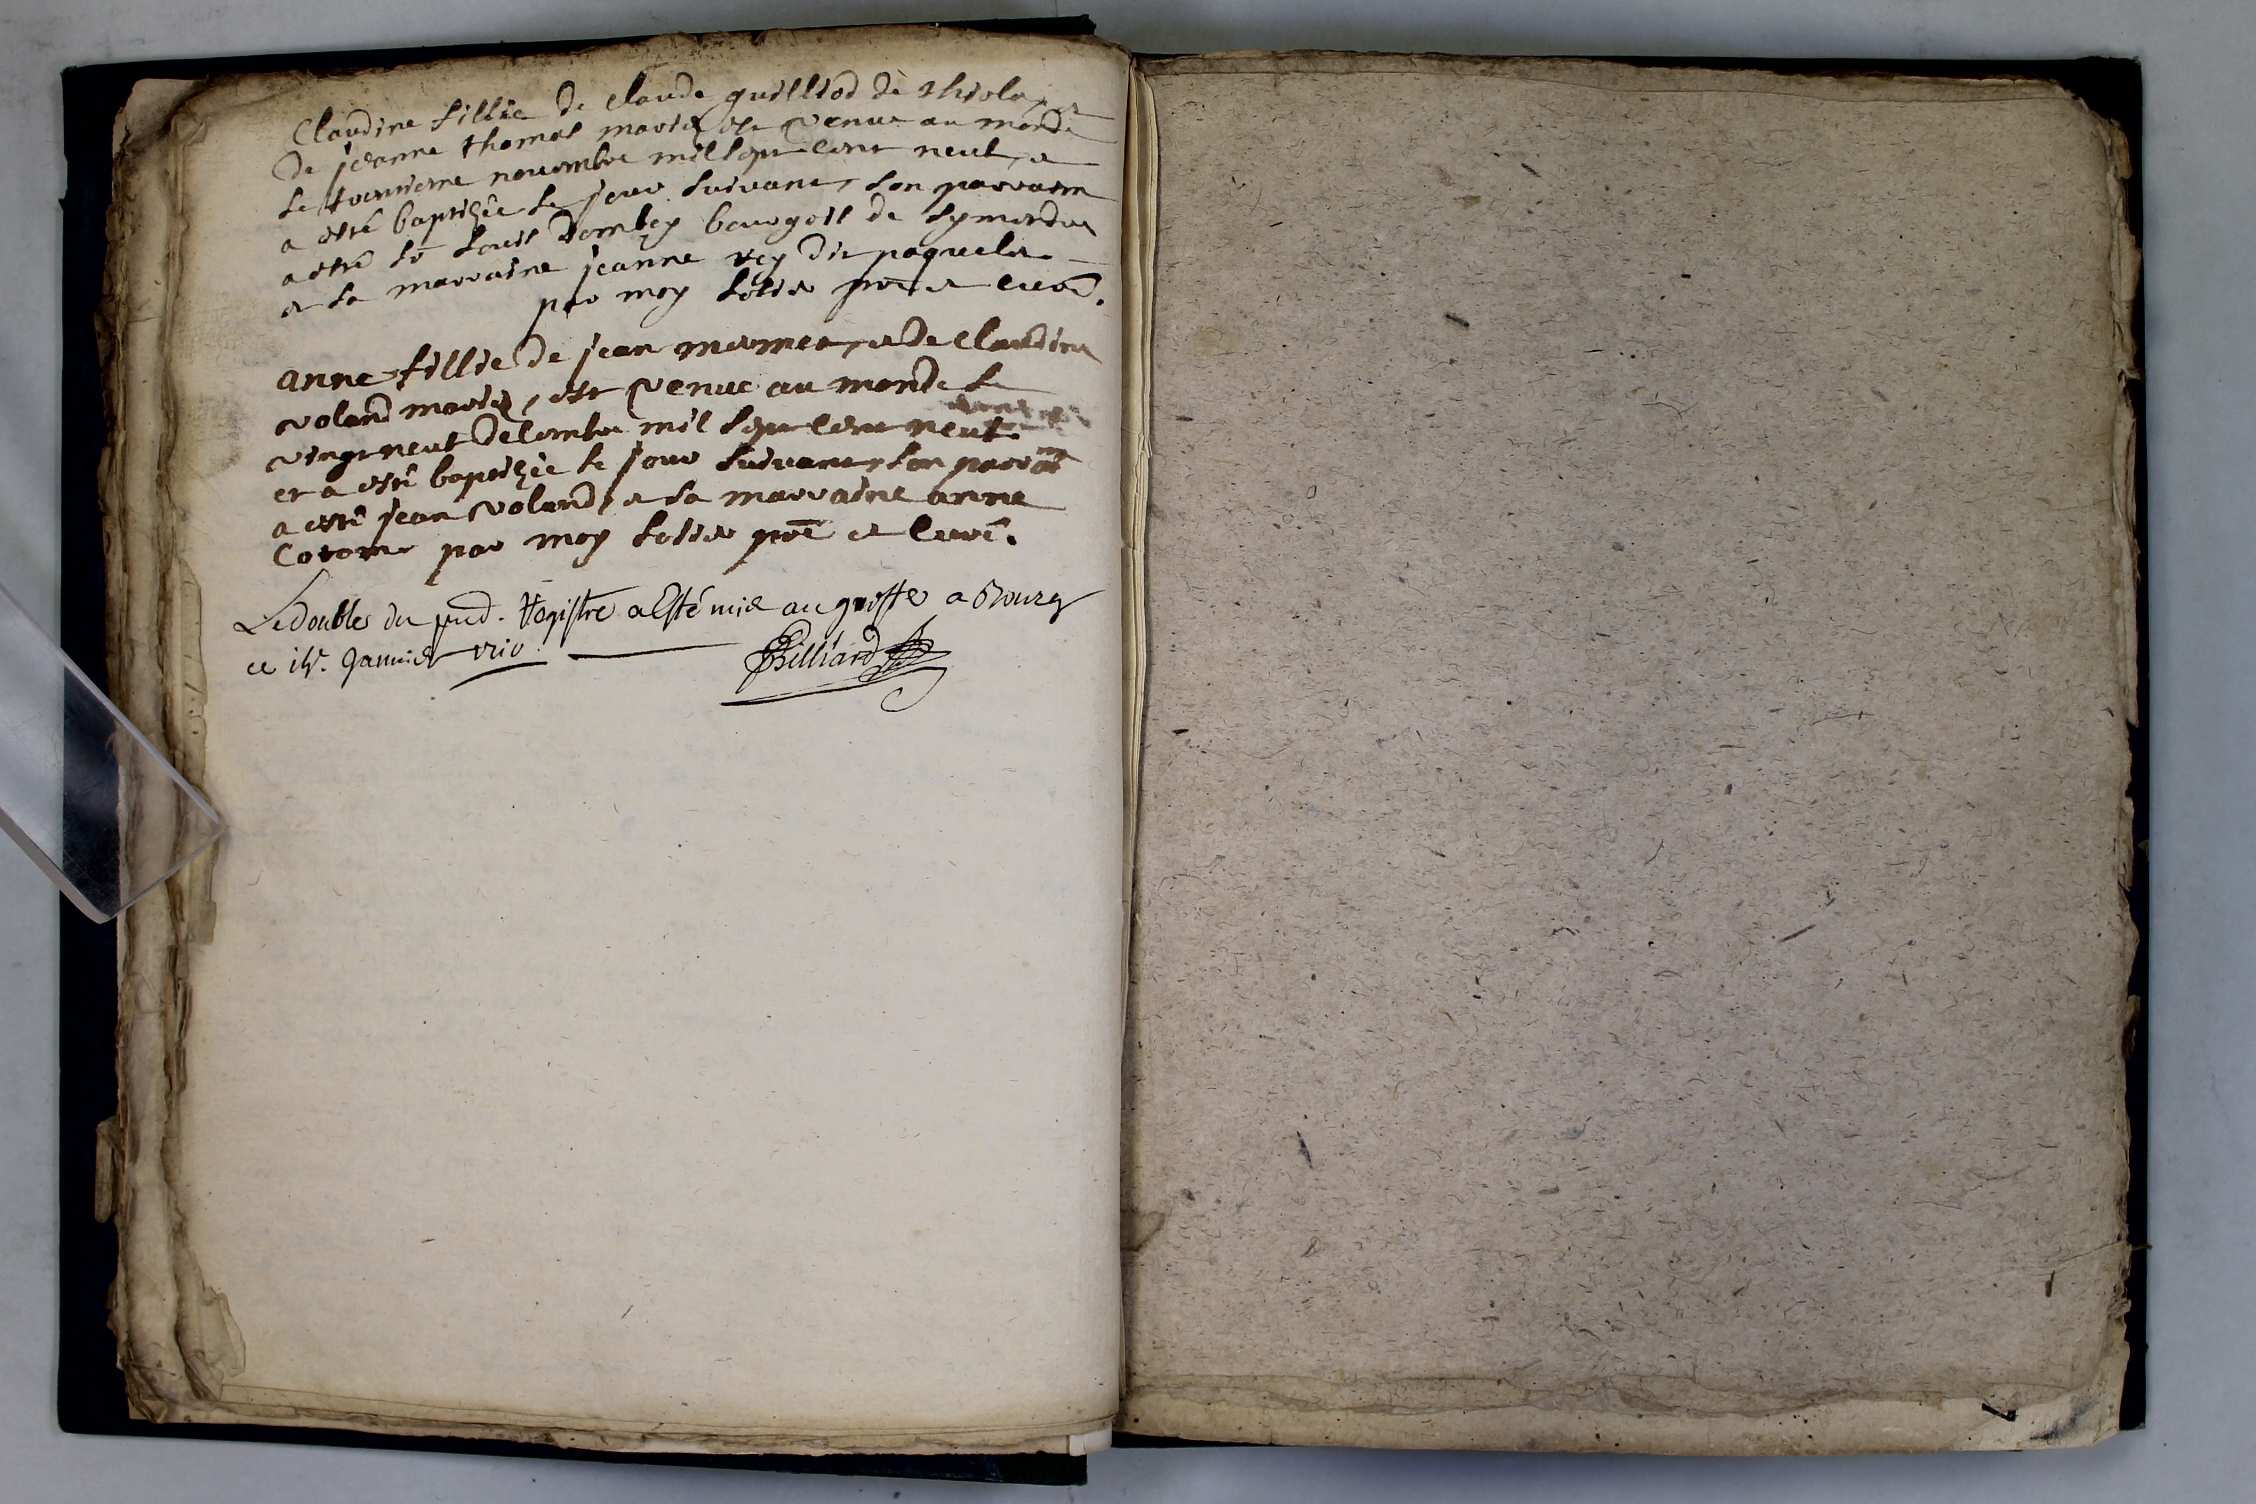 Claudine fillie de claude guilliod de thiola, et
de jeanne thomas mariés est venue au monde
le troisieme novembre mil sept cent neuf, et
a esté baptisée le jour suivant, son parrain
a esté sr Louis Dombey bourgois de symandre
et sa marraine jeanne rey dit paquelet
par moy pre et curé.
anne fillie de jean mermet, et de claudine
voland mariés, est venue au monde le
vingt neuf decembre mil sept cent neuf
et a esté baptisée le jour suivant, son parrain
a esté jean voland, et sa marraine anne
par moy pre et curé.
Le doubles du pnd. Registre a Esté mis au greffe a Bourg
ce 14e. Janvier 1710.
Billiard